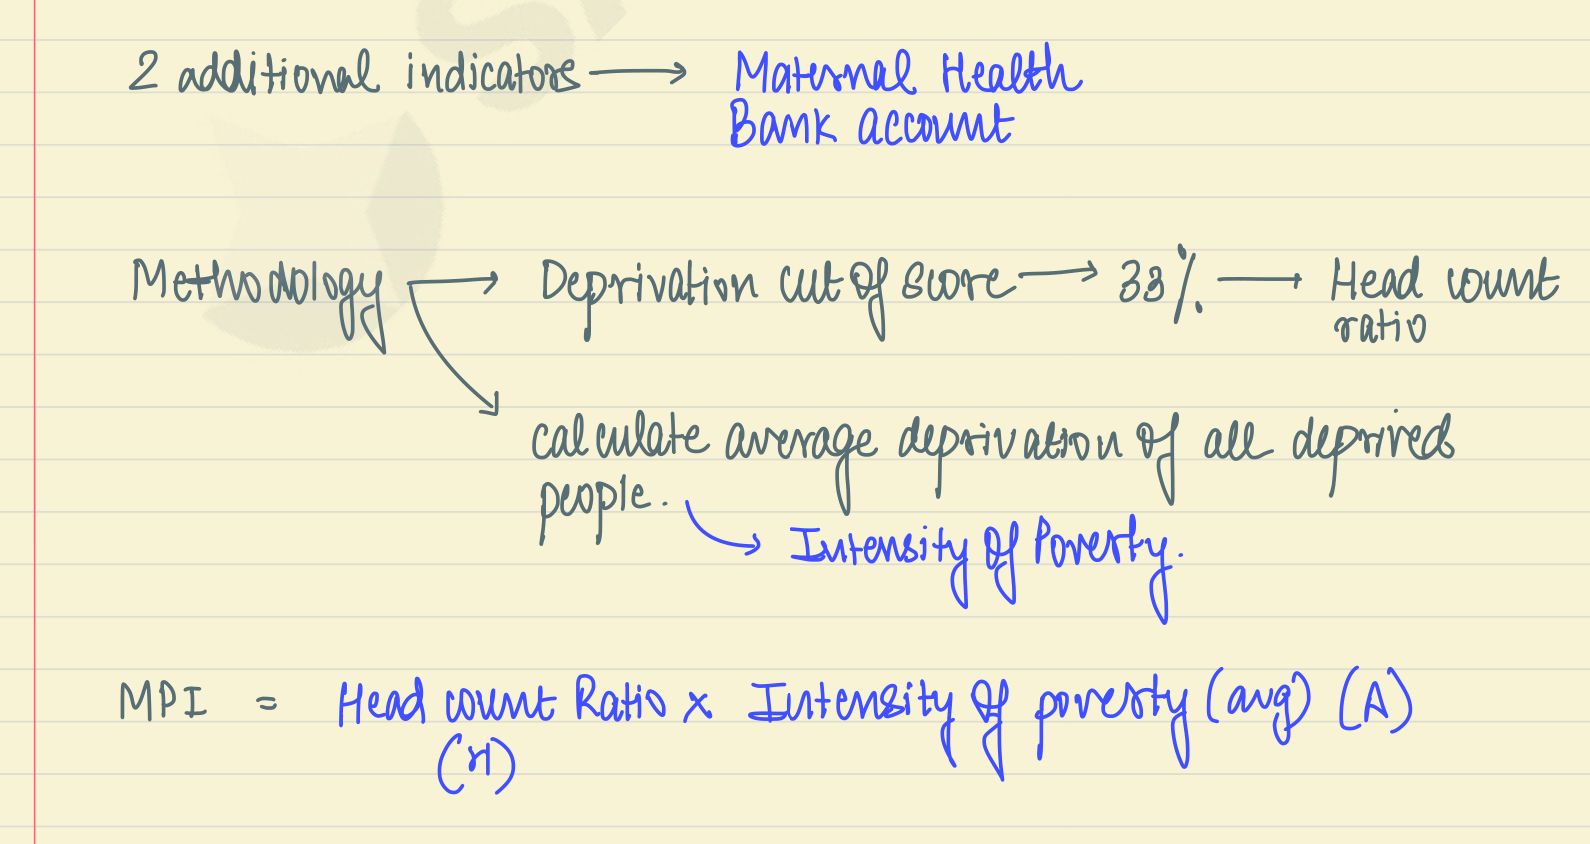 2 additional indicators → Maternal Health
Bank account
Methodology → Deprivation cut of score → 33% → Head count
ratio
calculate average deprivation of all deprived
people.
→ Intensity of Poverty.
MPI = Head count Ratio x Intensity of poverty (avg) (A)
(H)